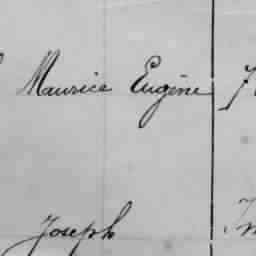 Maurice Eugène
Joseph